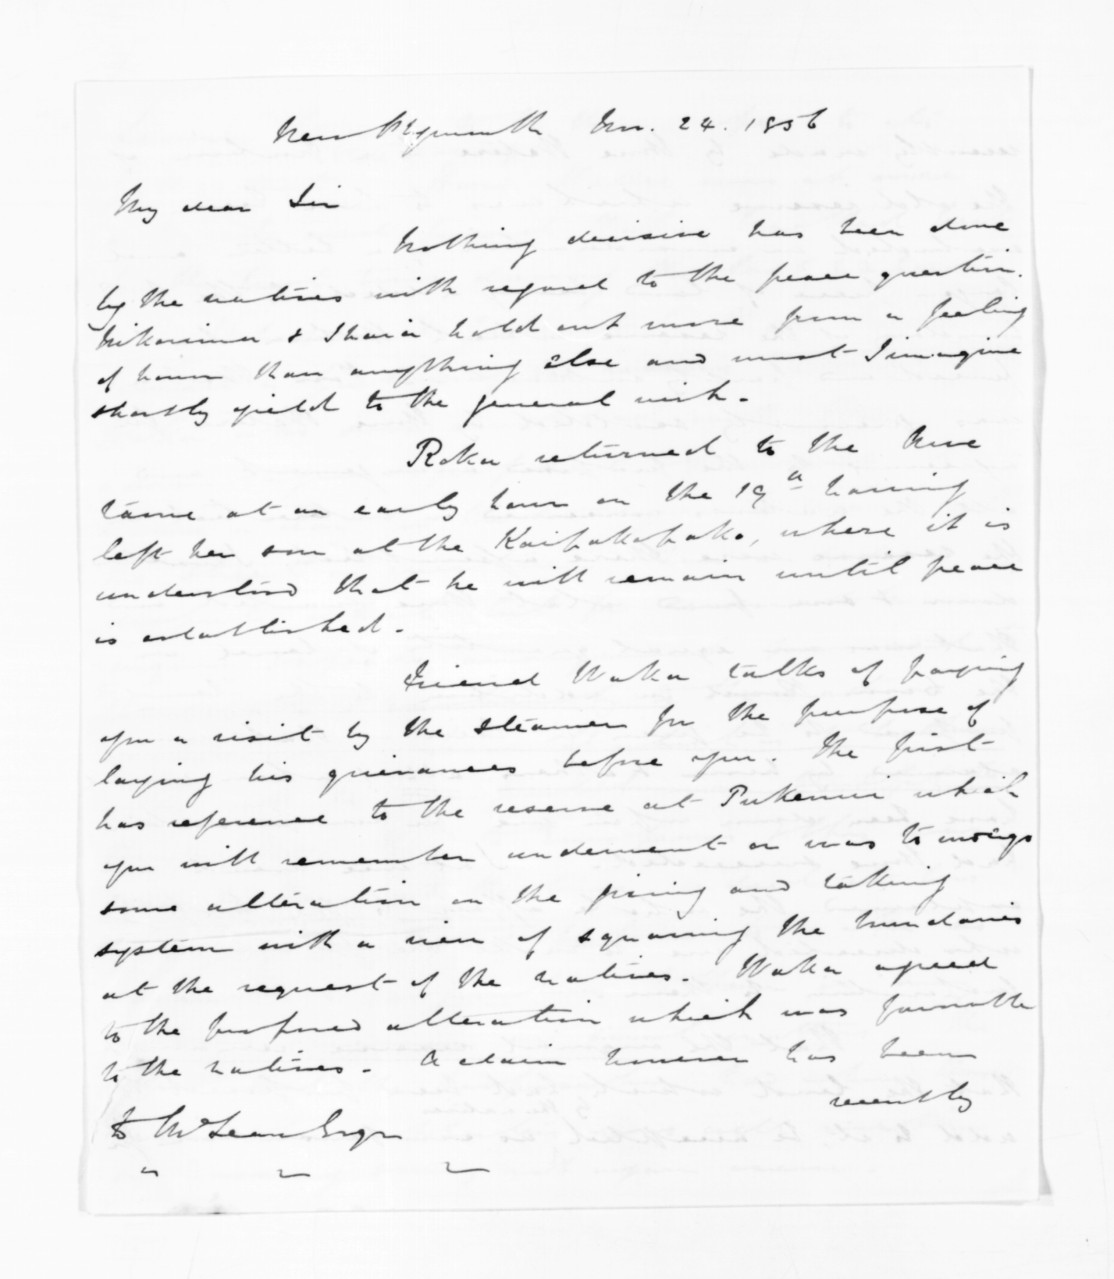 New Plymouth Nov. 24. 1856
My dear Sir
Nothing decisive has been done
by the natives with regard to the peace question.
Nikorima & Ihaia hold out more from a feeling
of honor than anything else and must I imagine
shortly yield to the general wish.
Roka returned to the
at an early hour on the 19th having
left her son at the Kaipakopako, where it is
understood that he will remain until peace
is established.
Friend Waka talks of paying
you a visit by the steamer for the purpose of
laying his grievances before you. The first
has reference to the reserve at Pukenui which
you will remember underwent or was to undergo
some alteration on the giving and taking
system with a view of squaring the boundaries
at the request of the natives. Waka agreed
to the proposed alteration which was favorable
to the natives. A claim however has been
recently
McLean Esqr